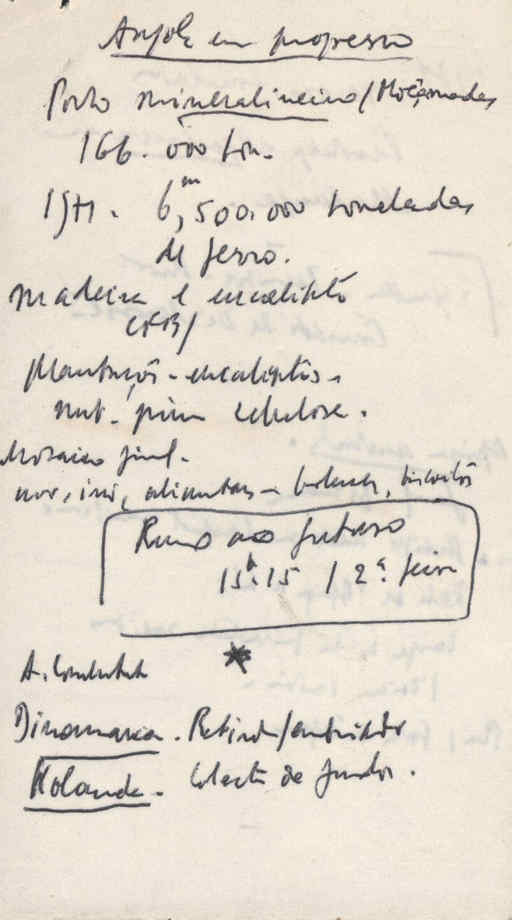 Angola em progresso
Porto mineraleiro / Moçamedes
166.000 ton.
1971. 6,500.000 toneladas
de ferro.
madeira e eucalipto
CFB /
plantações - eucaliptos -
pinu celulose.
Mosaico final.
alimentar - bolachas, biscoitos
Rumo ao futuro
15h.15 / 2ª. feira
*
A.
Dinamarca. /
Holanda. Colecta de fundos.